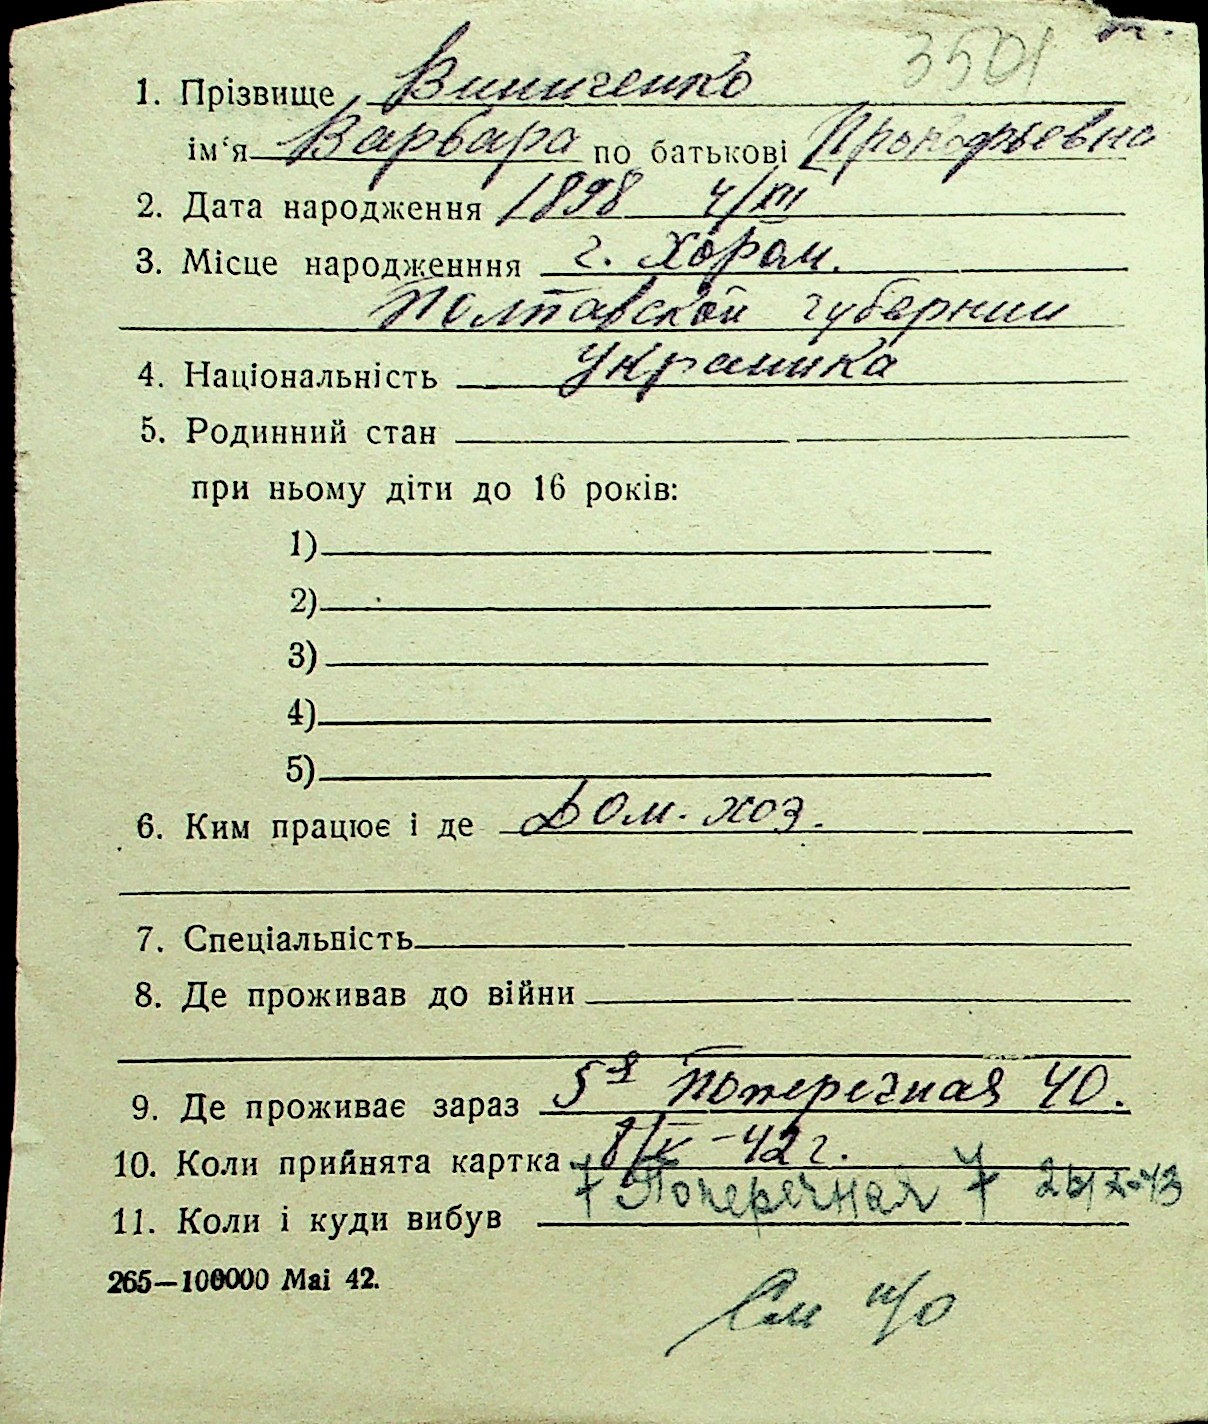 3501
1. Прізвище Виниченко
ім‘я Варвара по батькові Прокофьевна
2. Дата народження 1898 4/XII
3. Місце народженння г. Хорол.
Полтавской губернии
4. Національність Украинка
5. Родинний стан
при ньому діти до 16 років:
1)
2)
3)
4)
5)
6. Ким працює і де Дом. хоз.
7. Спеціальність
8. Де проживав до війни
9. Де проживає зараз 5я Поперечная 40.
10. Коли прийнята картка 8/IX-42 г.
7 Поперечная 7
11. Коли і куди вибув
265—100000 Mai 42.
См н/о